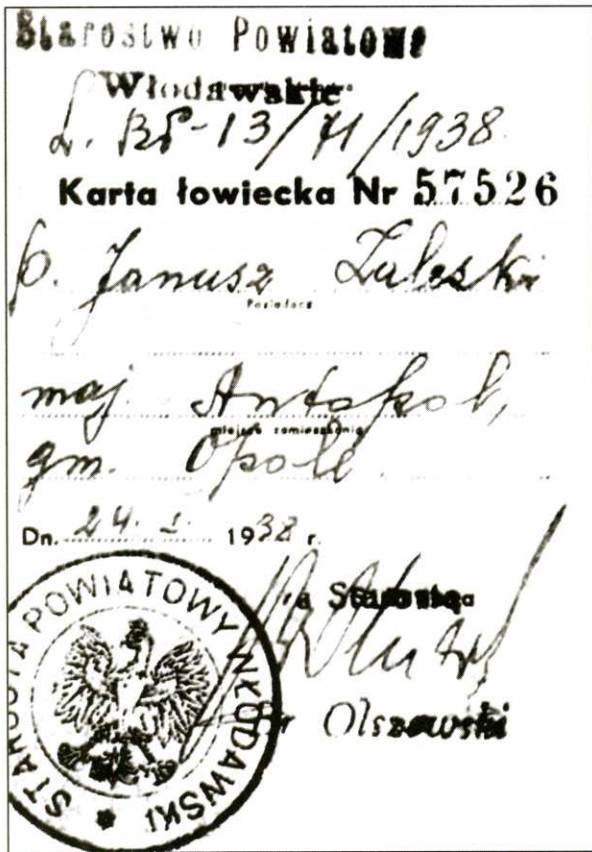 Starostwo Powiatowe
Włodawskie
L. BP-13/71/1938
Karta łowiecka Nr 57526
p. Janusz Zaleski
Posiadacz
maj. Antopol,
miejsce zamieszkania
gm. Opole
Dn. 24. I. 1938 r.
za Starostę
Olszewski
STAROSTA POWIATOWY WŁODAWSKI